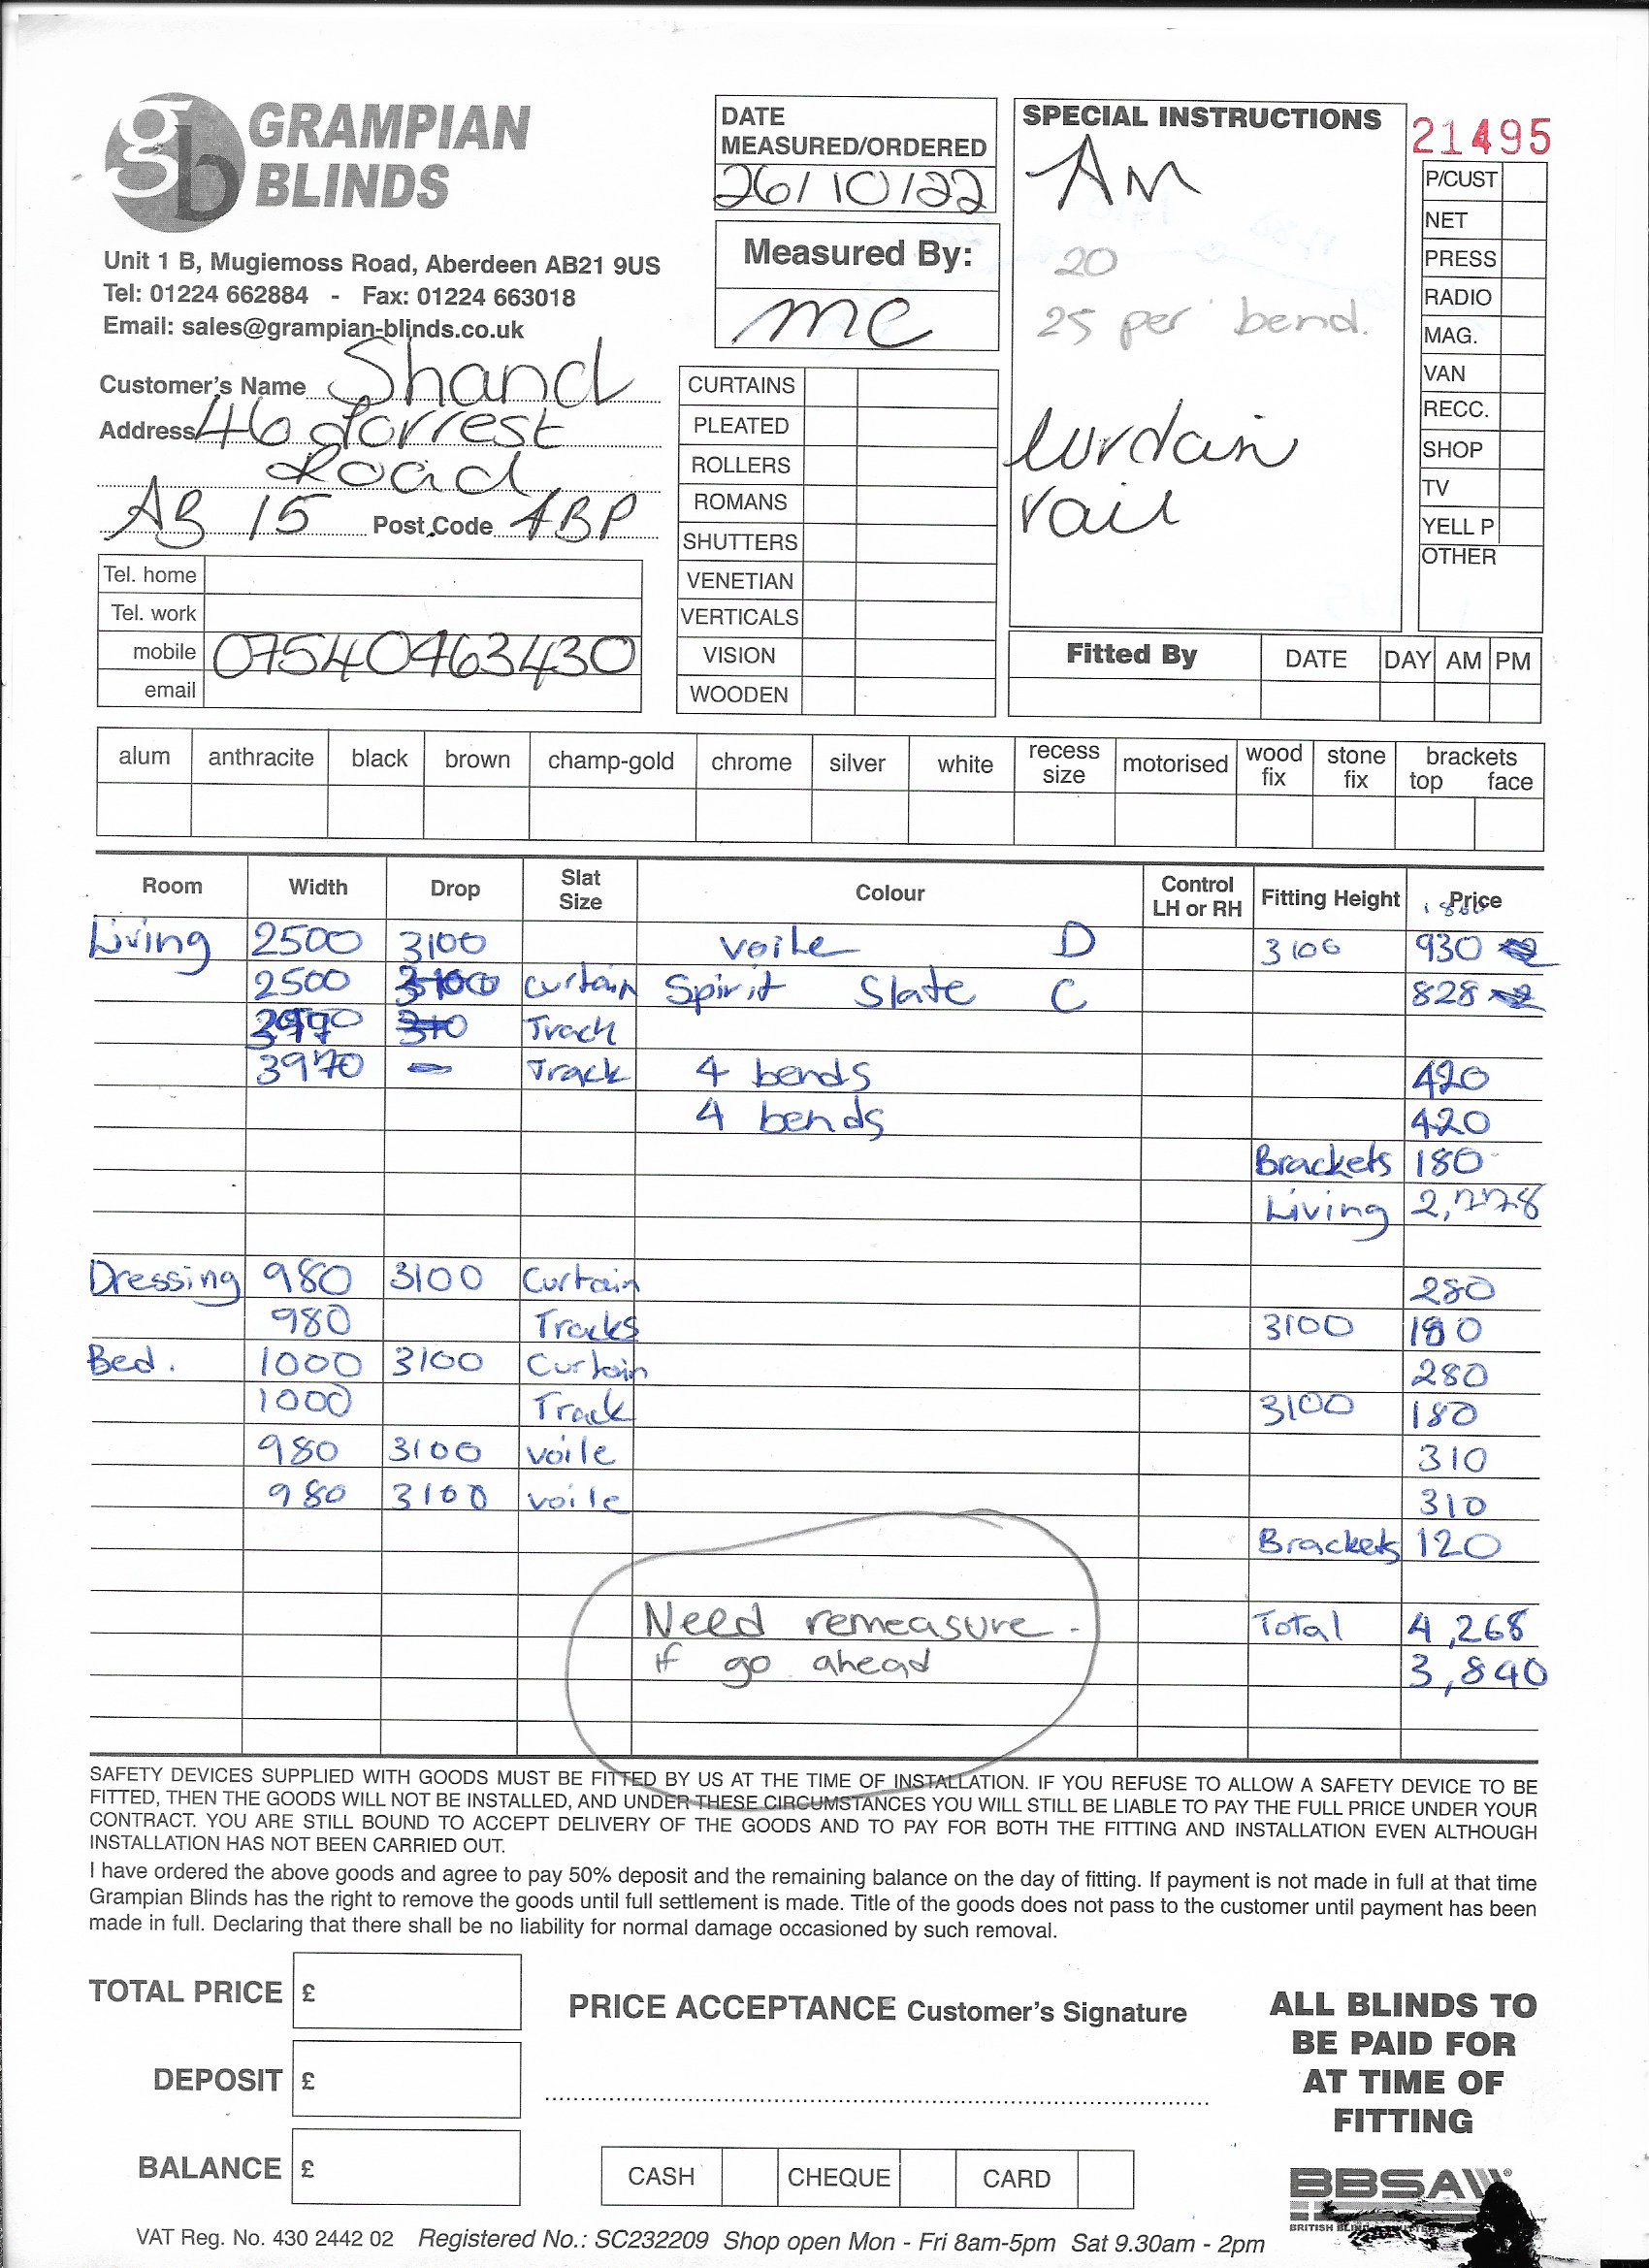 GRAMPIAN
BLINDS
Unit 1 B, Mugiemoss Road, Aberdeen AB21 9US
Tel: 01224 662884 - Fax: 01224 663018
Email: sales@grampian-blinds.co.uk
Customer's Name Shand
Address 46 forrest
Road
AB 15 Post Code 4BP
Tel. home
Tel. work
mobile 07540463430
email
DATE
MEASURED/ORDERED
26/10/22
Measured By:
mc
CURTAINS
PLEATED
ROLLERS
ROMANS
SHUTTERS
VENETIAN
VERTICALS
VISION
WOODEN
SPECIAL INSTRUCTIONS
AM
20
25 per bend.
Curtain
rail
21495
P/CUST
NET
PRESS
RADIO
MAG.
VAN
RECC.
SHOP
TV
YELL P
OTHER
Fitted By DATE DAY AM PM
alum anthracite black brown champ-gold chrome silver white recess size motorised wood fix stone fix brackets top face
Room Width Drop Slat Size Colour Control LH or RH Fitting Height Price
1860
Living 2500 3100 voile D 3100 930
2500 3100 curtain Spirit Slate C 828
Track
3970 - Track 4 bends 420
4 bends 420
Brackets 180
Living 2,778
Dressing 980 3100 Curtain 280
980 Tracks 3100 180
Bed. 1000 3100 Curtain 280
1000 Track 3100 180
980 3100 voile 310
980 3100 voile 310
Brackets 120
Need remeasure - Total 4,268
if go ahead 3,840
SAFETY DEVICES SUPPLIED WITH GOODS MUST BE FITTED BY US AT THE TIME OF INSTALLATION. IF YOU REFUSE TO ALLOW A SAFETY DEVICE TO BE
FITTED, THEN THE GOODS WILL NOT BE INSTALLED, AND UNDER THESE CIRCUMSTANCES YOU WILL STILL BE LIABLE TO PAY THE FULL PRICE UNDER YOUR
CONTRACT. YOU ARE STILL BOUND TO ACCEPT DELIVERY OF THE GOODS AND TO PAY FOR BOTH THE FITTING AND INSTALLATION EVEN ALTHOUGH
INSTALLATION HAS NOT BEEN CARRIED OUT.
I have ordered the above goods and agree to pay 50% deposit and the remaining balance on the day of fitting. If payment is not made in full at that time
Grampian Blinds has the right to remove the goods until full settlement is made. Title of the goods does not pass to the customer until payment has been
made in full. Declaring that there shall be no liability for normal damage occasioned by such removal.
TOTAL PRICE £
DEPOSIT £
BALANCE £
PRICE ACCEPTANCE Customer's Signature
CASH CHEQUE CARD
ALL BLINDS TO
BE PAID FOR
AT TIME OF
FITTING
BBSA
VAT Reg. No. 430 2442 02 Registered No.: SC232209 Shop open Mon - Fri 8am-5pm Sat 9.30am - 2pm